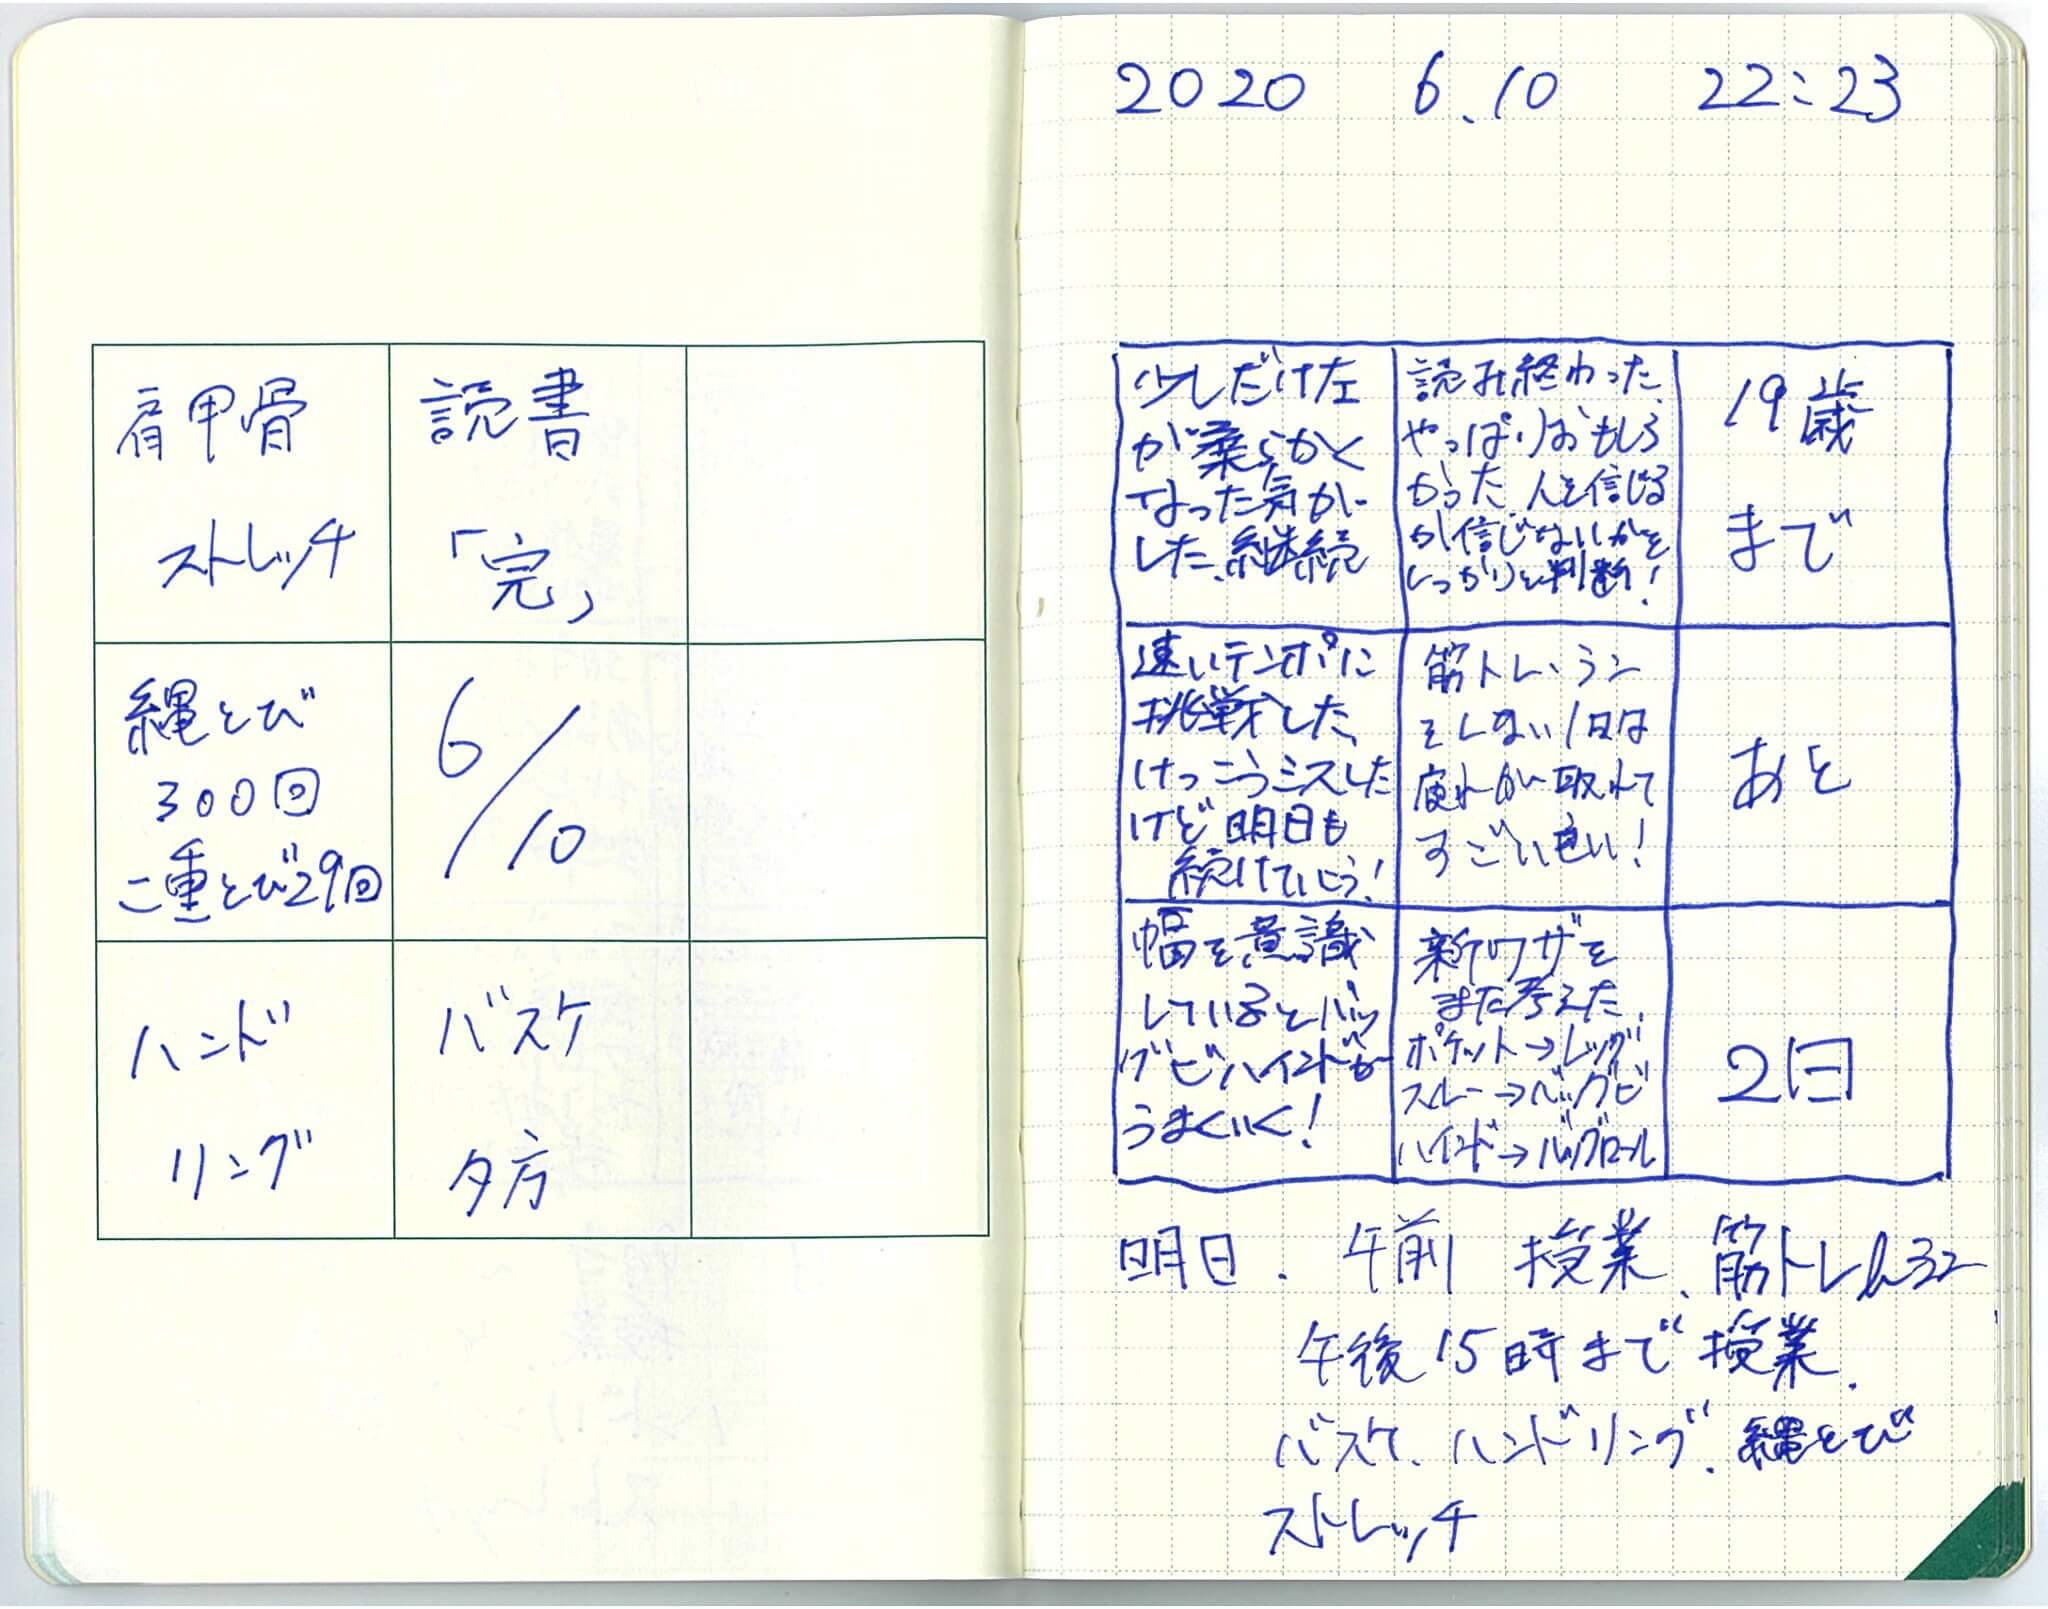 肩甲骨
ストレッチ
読書
「完」
縄とび
300回
二重とび29回
6/10
ハンド
リング
バスケ
夕方
2020 6.10 22:23
少しだけ左
が柔らかく
なった気が
した、継続
読み終わった、
やっぱりおもしろ
かった 人を信じる
か信じないかを
しっかりと判断!
19歳
まで
速いテンポに
挑戦した、
けっこうミスした
けど明日も
続けていこう!
筋トレ、ラン
をしない1日は
疲れが取れて
すごい良い!
あと
幅を意識
しているとバッ
グビハインドも
うまくいく!
新ワザを
また考えた、
ポケット→レッグ
スルー→バックビ
ハインド→バックロール
2日
明日. 午前 授業、筋トレ
午後15時まで授業.
バスケ、ハンドリング、縄とび
ストレッチ